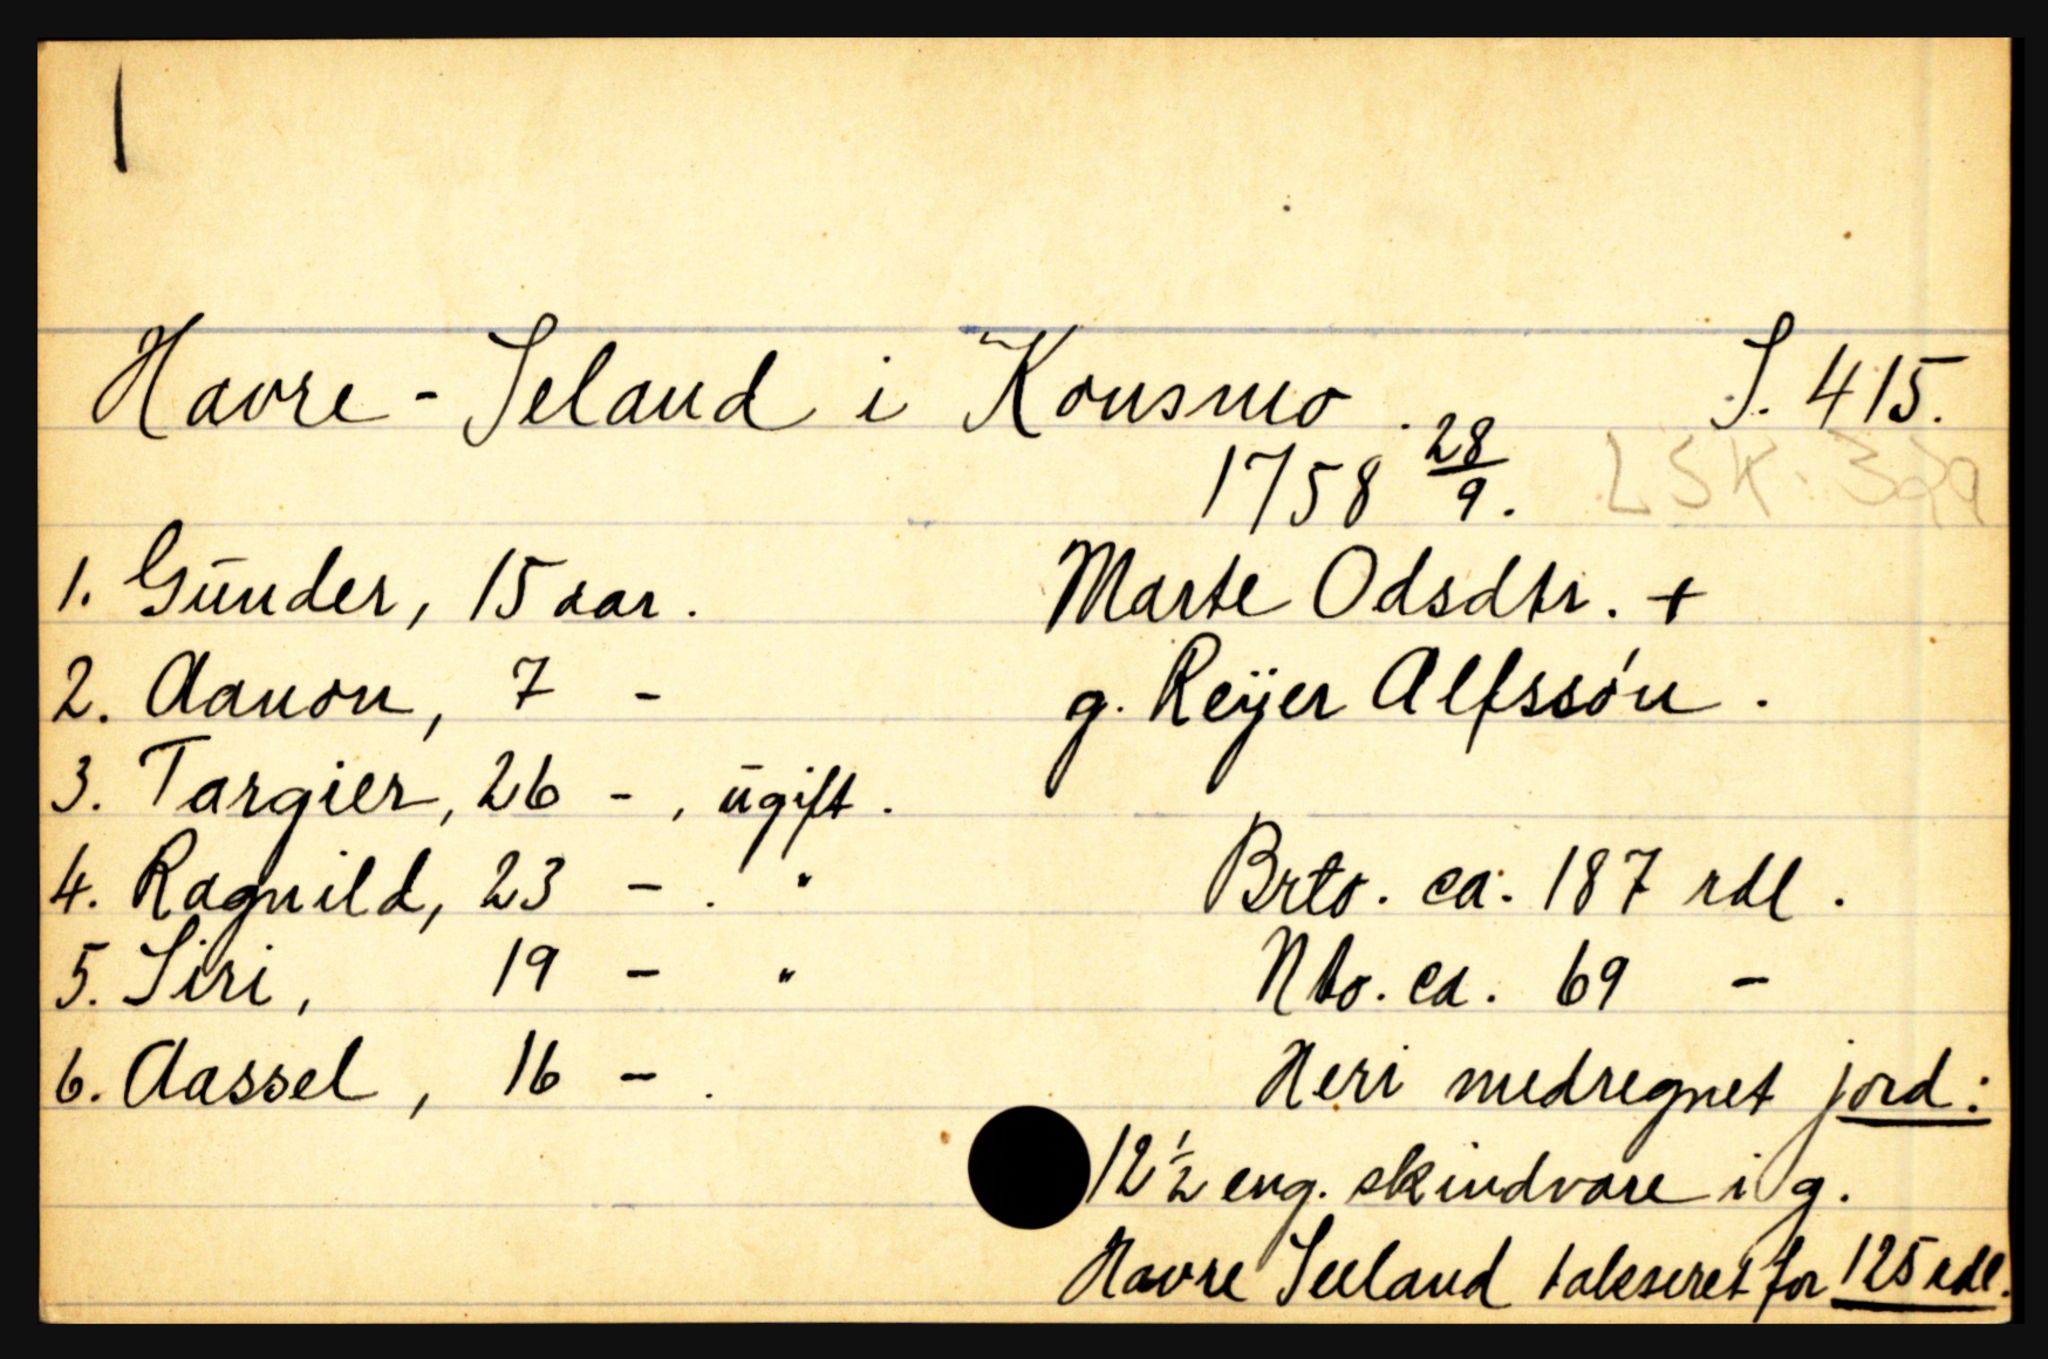 Havre - Seland i Konsmo. S. 415.
1758 28/9.
1. Gūnder, 15 aar.
2. Aanon, 7 -
3. Targier, 26 - , ūgift.
4. Ragnild, 23 - . "
5. Siri, 19 - "
6. Aassel, 16 - .
Marte Odsdtr. +
g. Reÿer Alfssón.
Brto. ca. 187 rdl.
Nto. ca. 69 -
Heri medregnet jord:
12 1/2 eng. skindvare i g.
Havre Seeland takseret for 125 rdl.